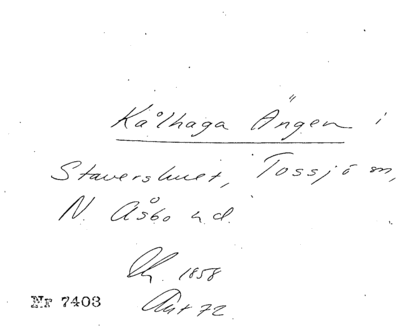 Kålhaga Ängen i
Stavershult, Tossjö sn,
N. Åsbo hd.
1858
Akt 72
Nr 7403